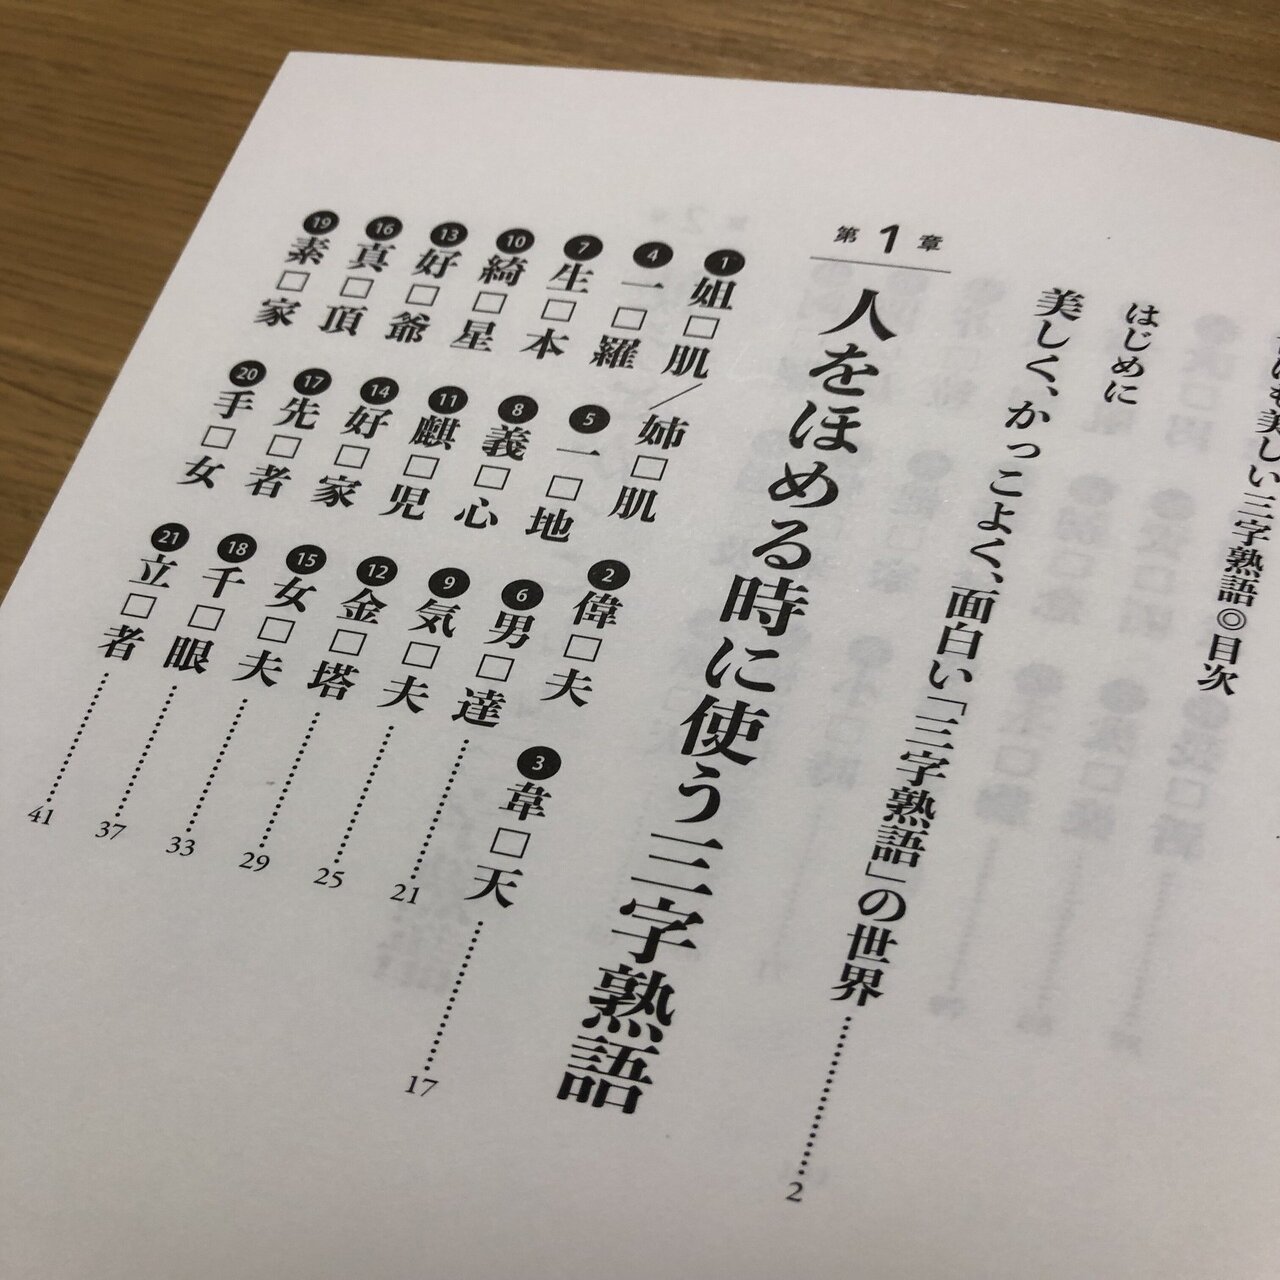 も美しい三字熟語◎目次
はじめに
美しく、かっこよく、面白い「三字熟語」の世界……2
第1章
人をほめる時に使う三字熟語
❶姐□肌／姉□肌 ❷偉□夫 ❸韋□天……17
❹一□羅 ❺一□地 ❻男□達……21
❼生□本 ❽義□心 ❾気□夫……25
❿綺□星 ⓫麒□児 ⓬金□塔……29
⓭好□爺 ⓮好□家 ⓯女□夫……33
⓰真□頂 ⓱先□者 ⓲千□眼……37
⓳素□家 ⓴手□女 ㉑立□者……41